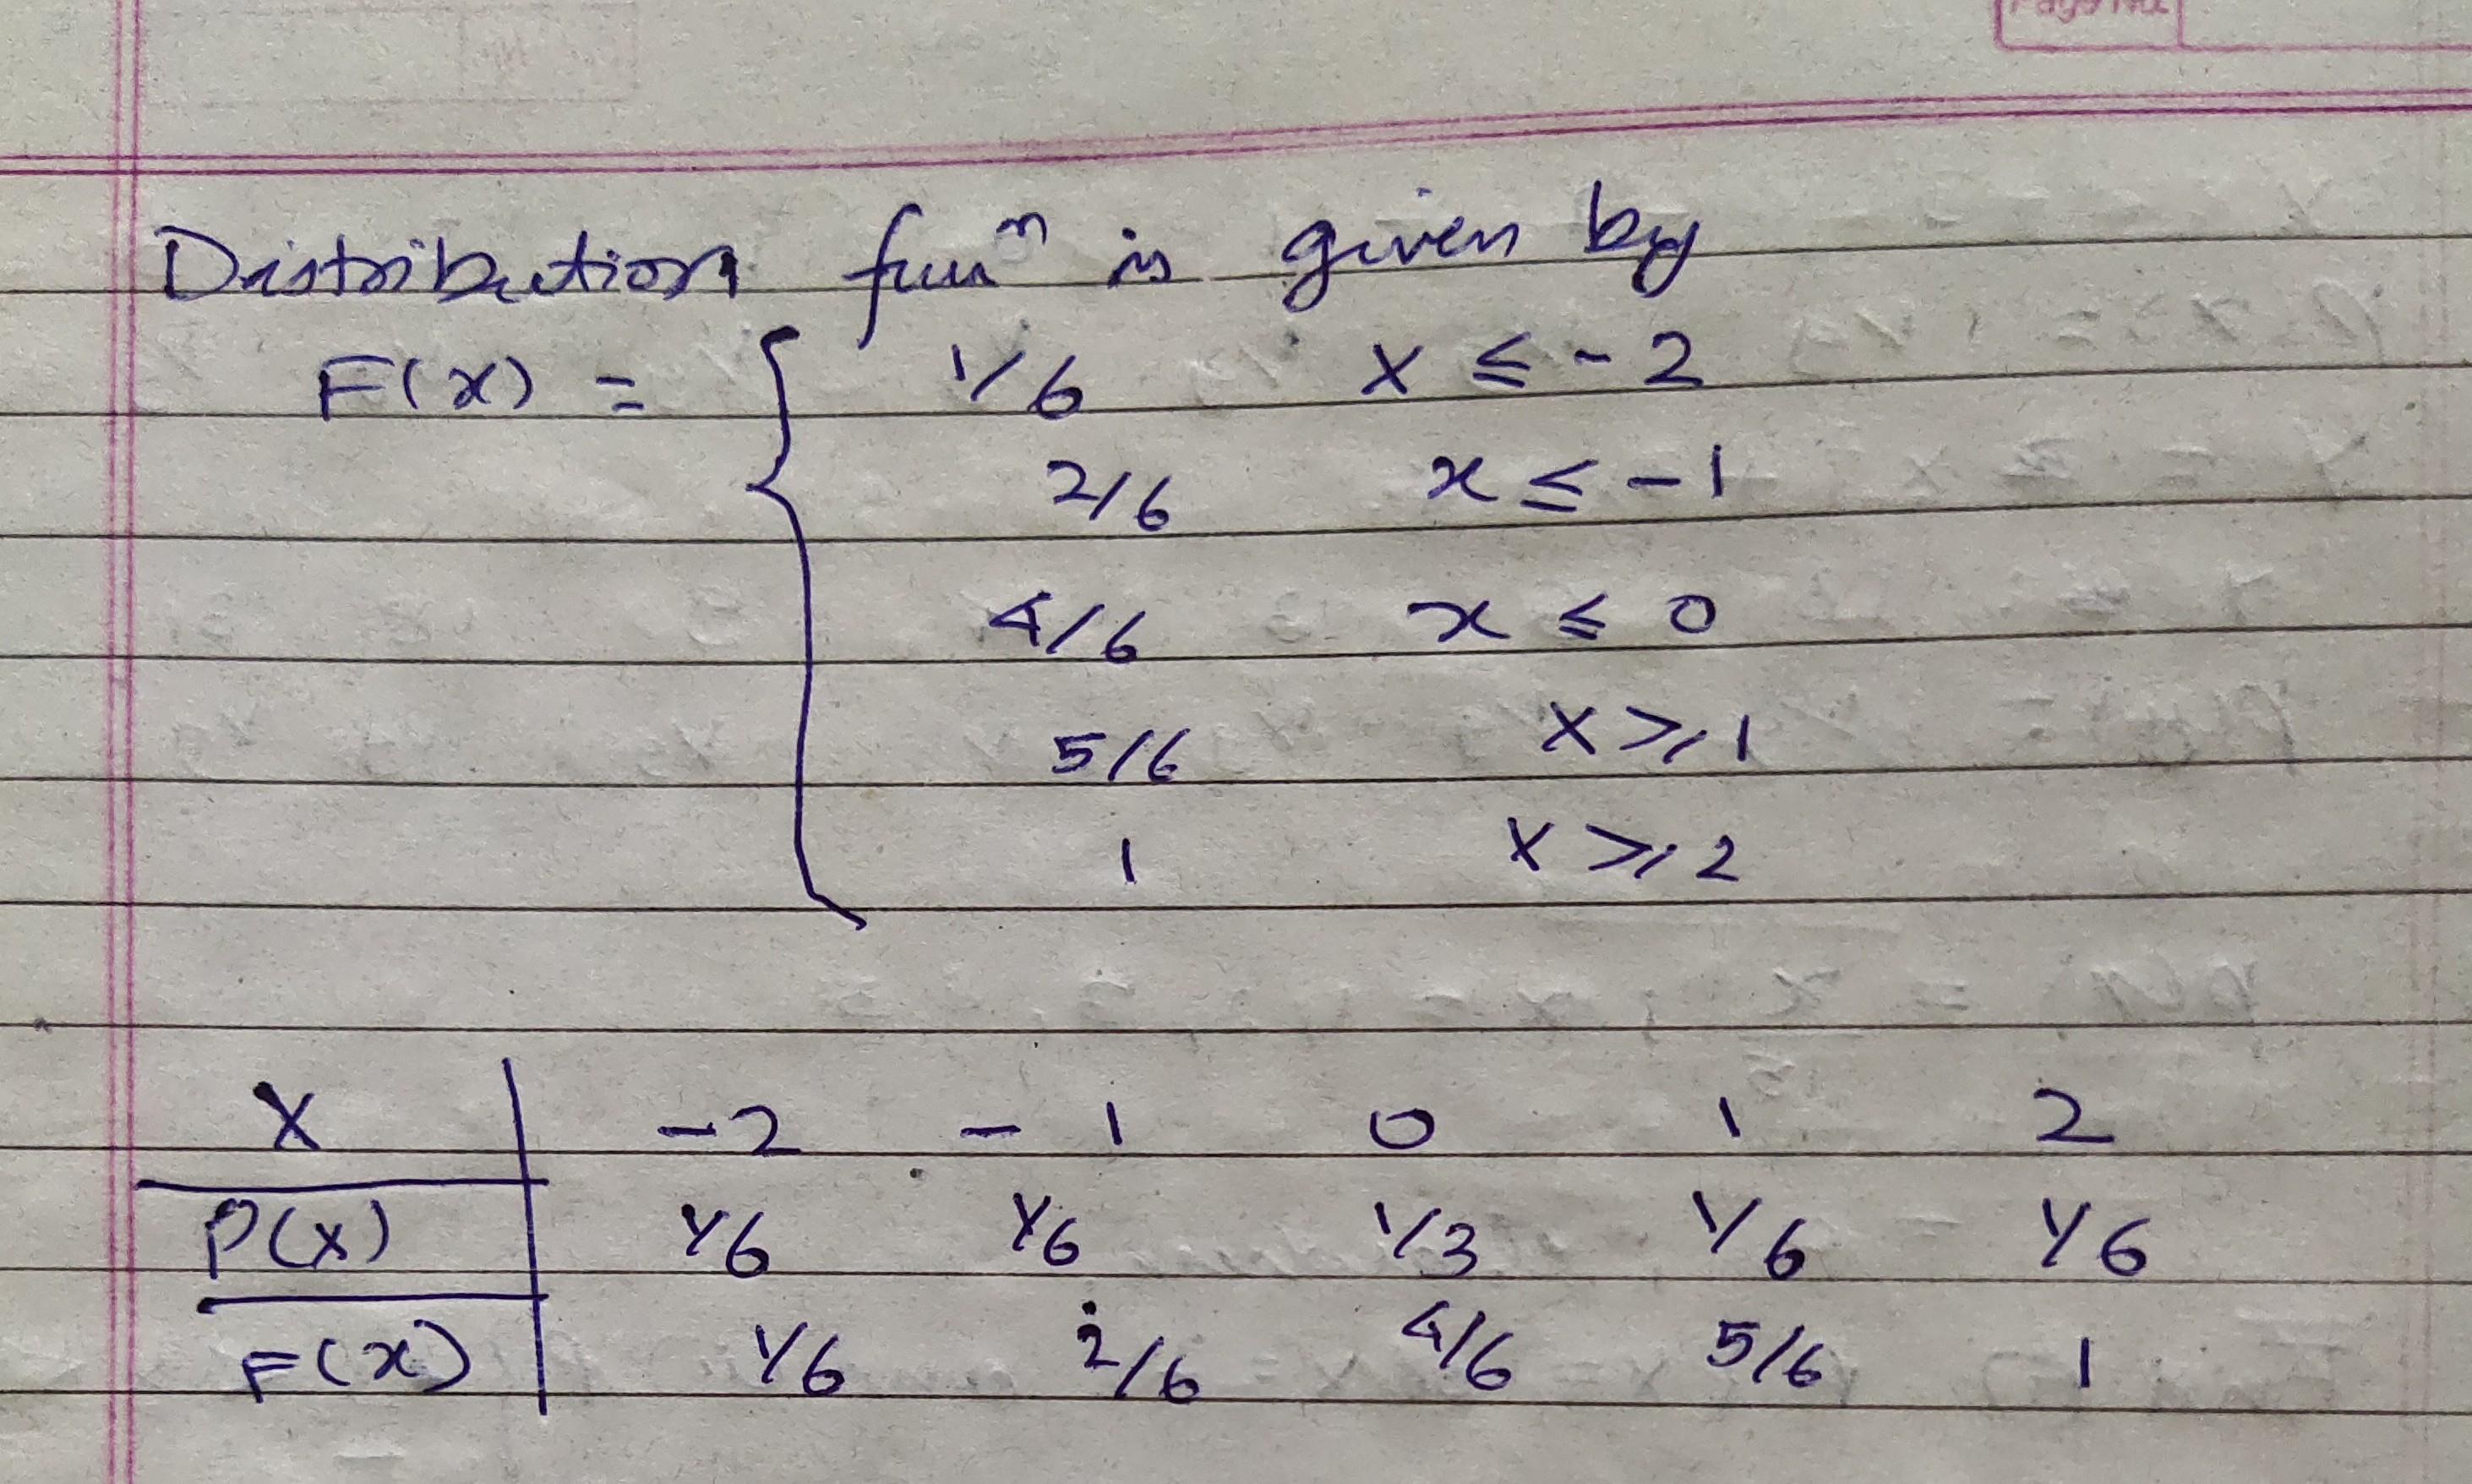 Page No.
Distribution funⁿ is given by
F(x) = { 1/6 x ≤ -2
2/6 x ≤ -1
4/6 x ≤ 0
5/6 x ≥ 1
1 x ≥ 2
X | -2 -1 0 1 2
P(x) | 1/6 1/6 1/3 1/6 1/6
F(x) | 1/6 2/6 4/6 5/6 1